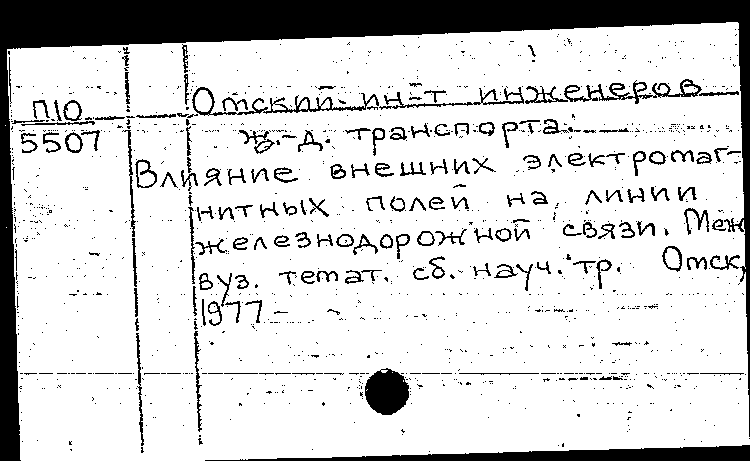 П10
5507
Омский ин-т инженеров
ж.-д. транспорта.
Влияние внешних электромаг-
нитных полей на линии
железнодорожной связи. Меж
вуз. темат. сб. науч. тр. Омск,
1977 -